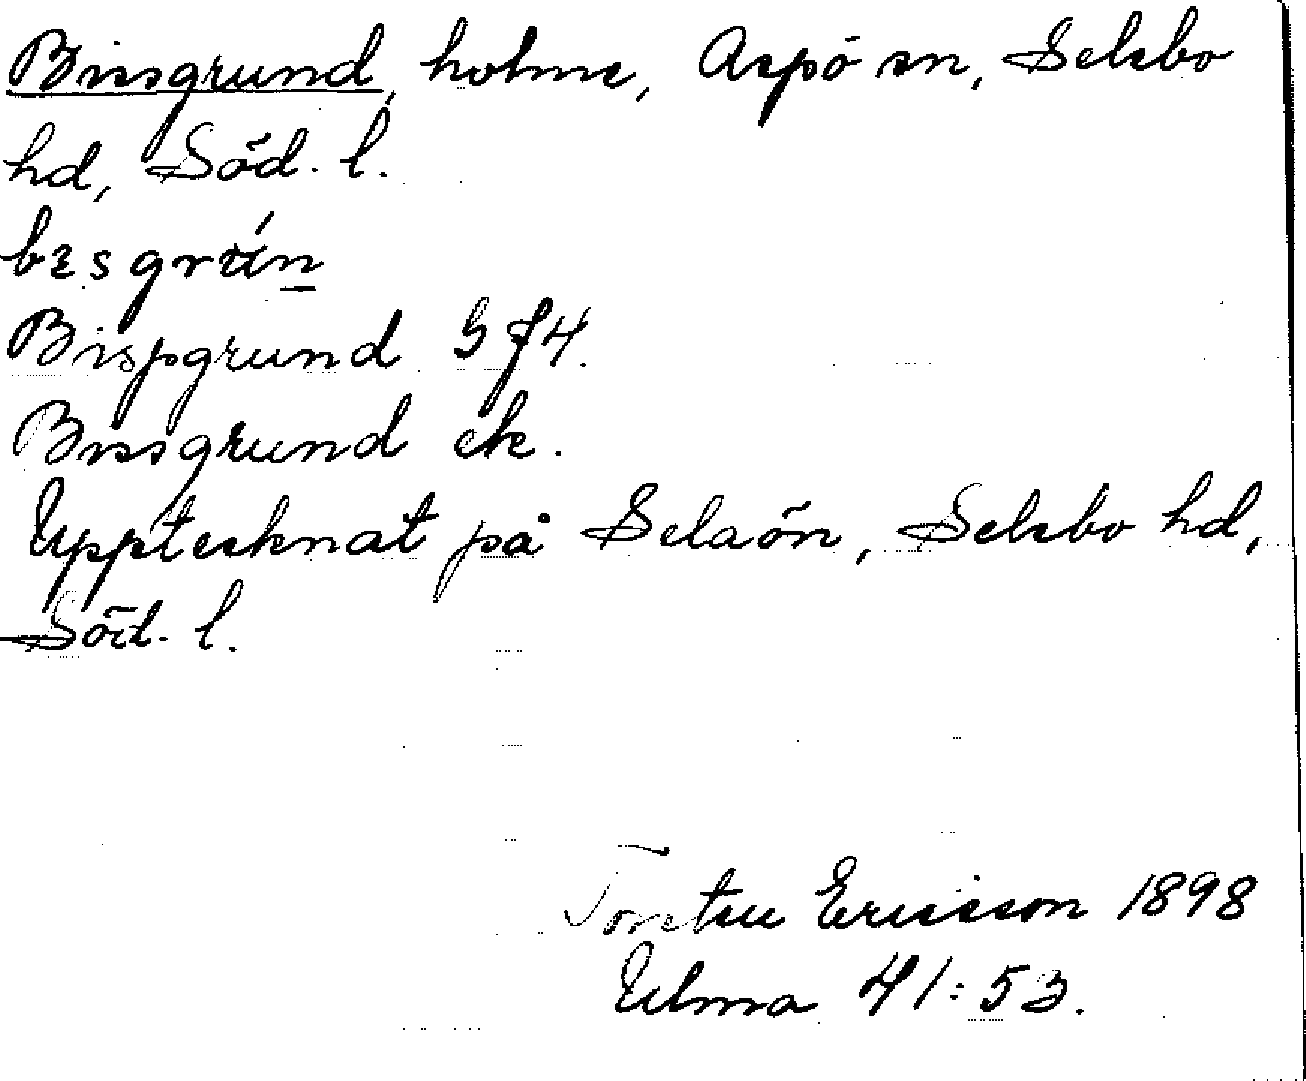 Bissgrund, holme, Aspö sn, Selebo
hd, Söd. l.
Bispgrund G f4.
Bissgrund ek.
Upptecknat på Selaön, Selebo hd,
Söd. l.
Torsten Ericsson 1898
Ulma 41:53.